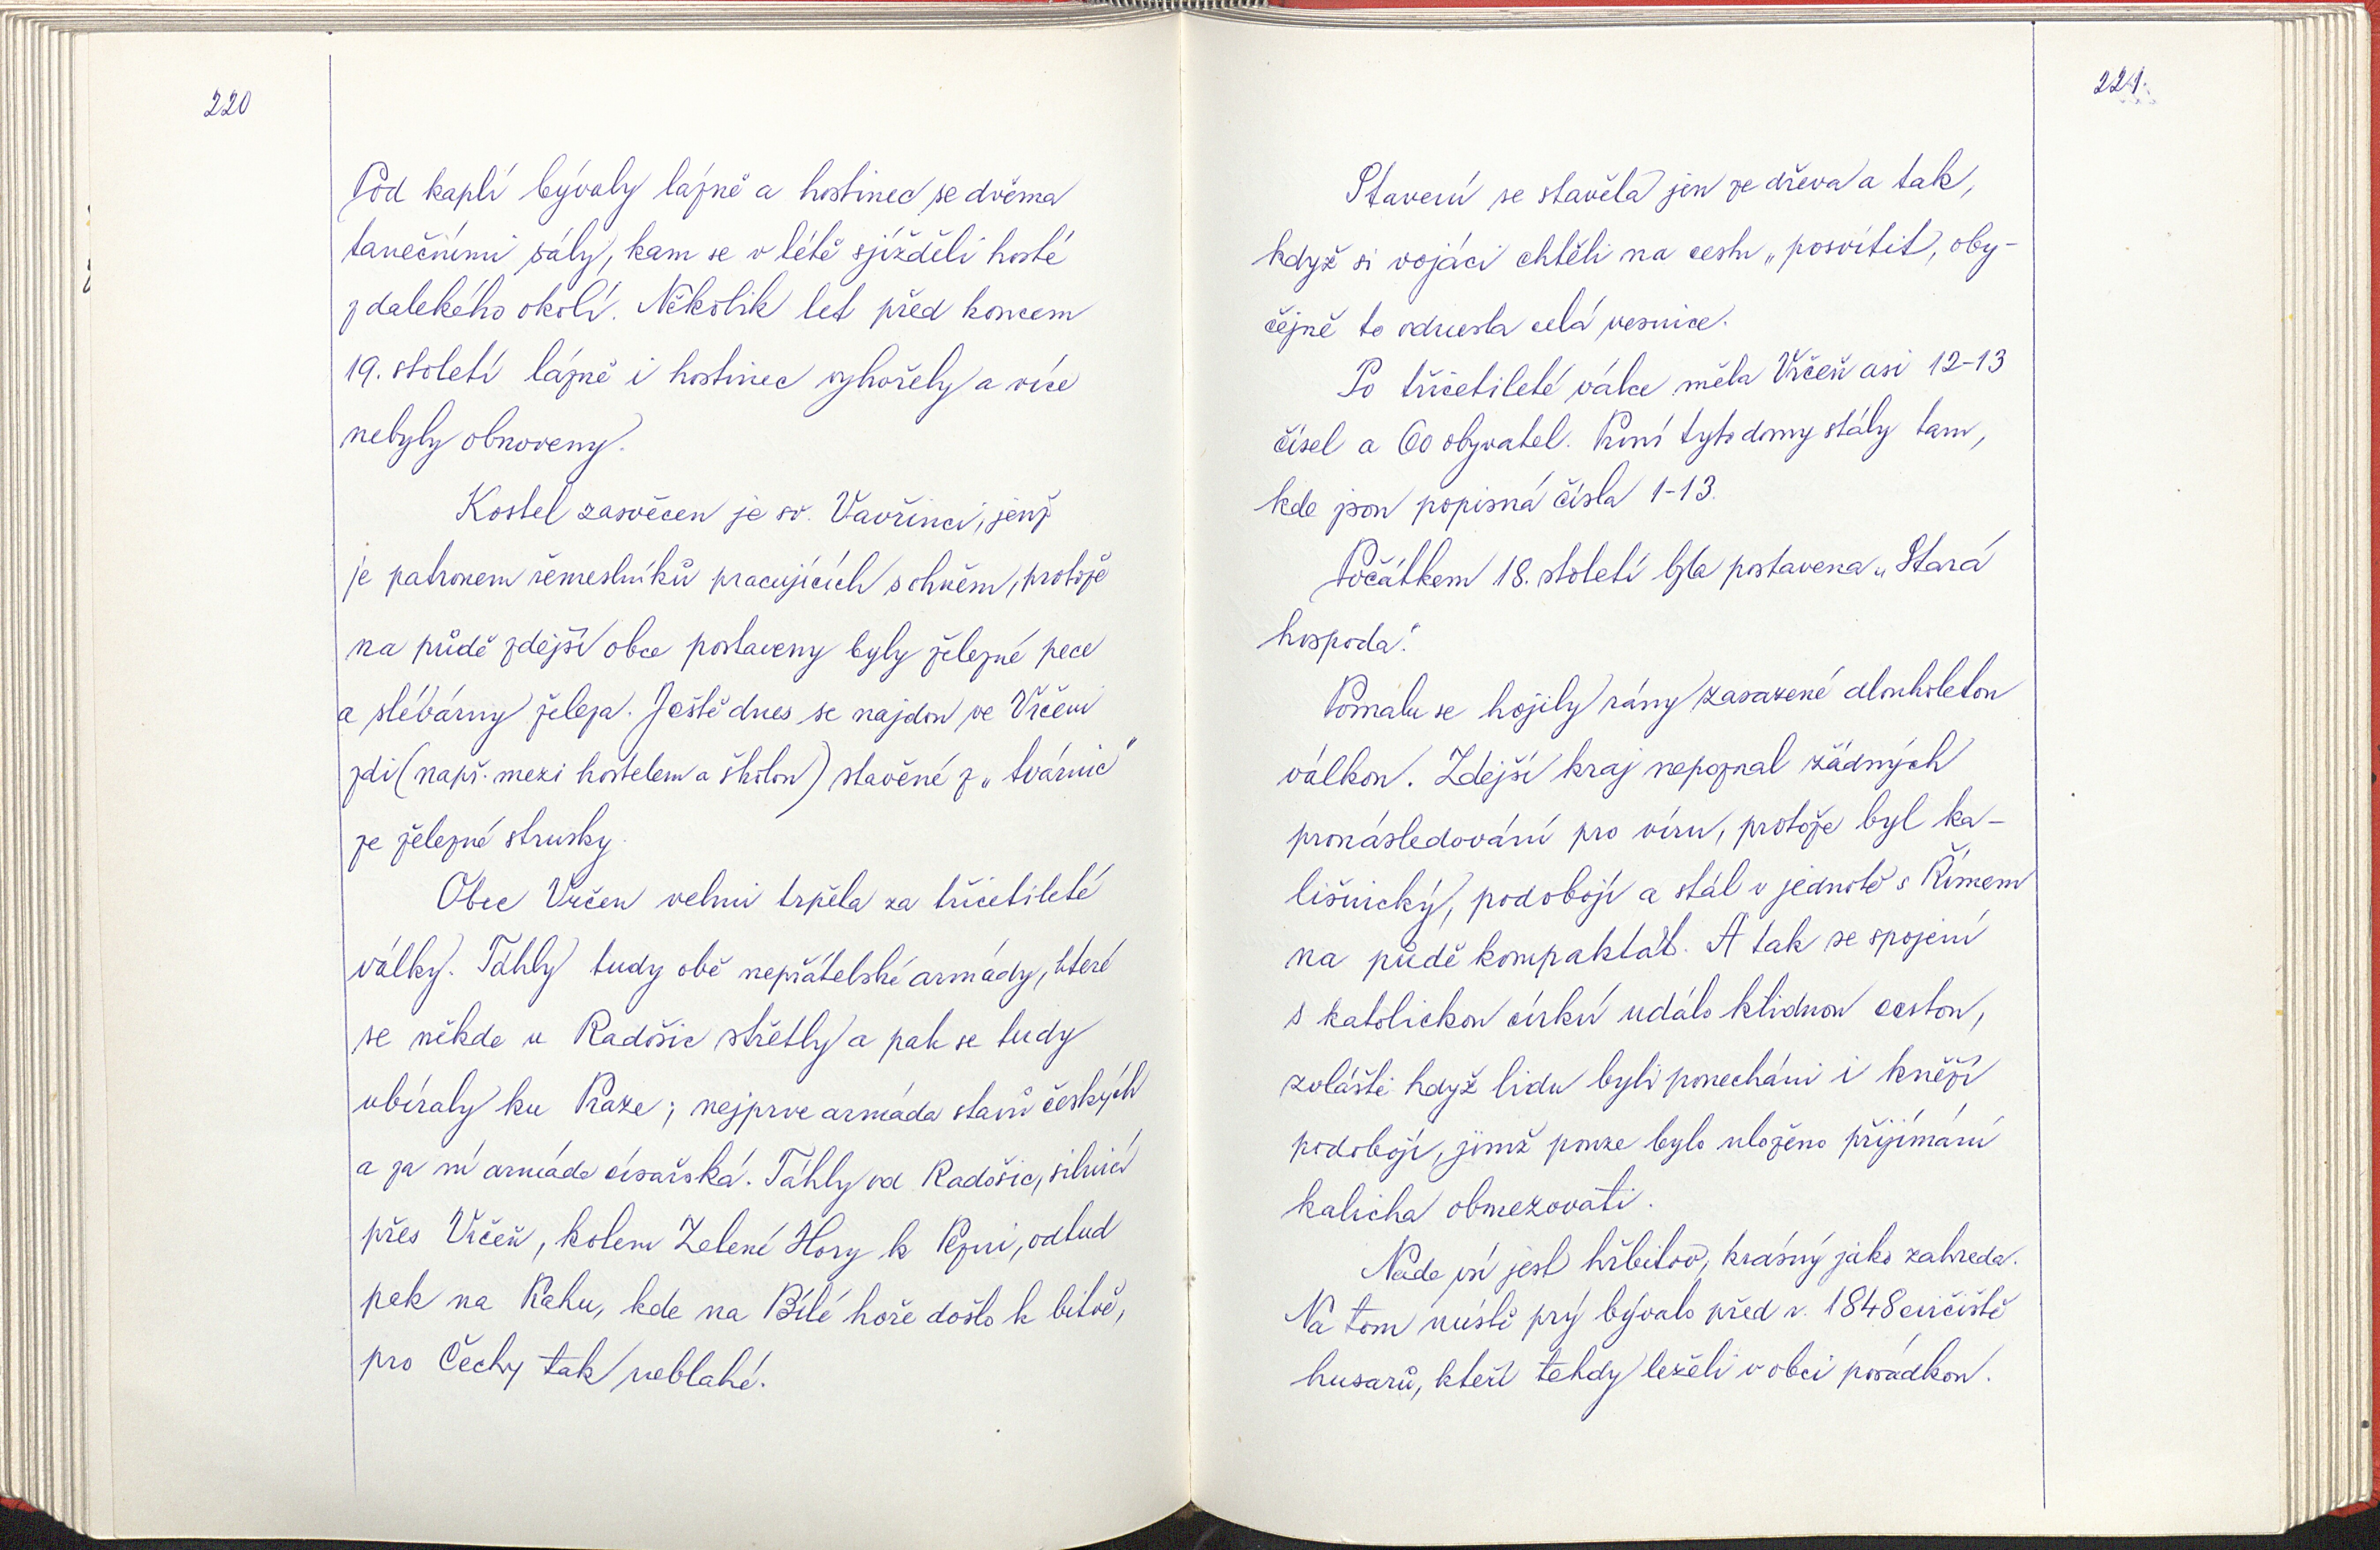 220
Pod kaplí bývaly lázně a hostinec se dvěma
tanečními sály, kam se v létě sjížděli hosté
z dalekého okolí. Několik let před koncem
19. století lázně i hostinec vyhořely a více
nebyly obnoveny.
Kostel zasvěcen je sv. Vavřinci, jenž
je patronem řemeslníků pracujících s ohněm, protože
na půdě zdejší obce postaveny byly železné pece
a slévárny železa. Ještě dnes se najdou ve Vrčeni
zdi (např. mezi kostelem a školou) stavěné z „tvárnic"
ze železné strusky.
Obec Vrčen velmi trpěla za třicetileté
války. Táhly tudy obě nepřátelské armády, které
se někde u Radošic střetly a pak se tudy
ubíraly ku Praze; nejprve armáda stavů českých
a za ní armáda císařská. Táhly od Radošic, silnicí
přes Vrčeň, kolem Zelené Hory k Plzni, odtud
pak na Prahu, kde na Bílé hoře došlo k bitvě,
pro Čechy tak neblahé.
221.
Stavení se stavěla jen ze dřeva a tak,
když si vojáci chtěli na cestu „posvítit, oby-
čejně to odnesla celá vesnice.
Po třicetileté válce měla Vrčeň asi 12-13
čísel a 60 obyvatel. První tyto domy stály tam,
kde jsou popisná čísla 1-13.
Počátkem 18. století byla postavena „Stará
hospoda".
Pomalu se hojily rány zasazené dlouholetou
válkou. Zdejší kraj nepoznal žádných
pronásledování pro víru, protože byl ka-
lišnický, podobojí a stál v jednotě s Římem
na půdě kompaktát. A tak se spojení
s katolickou církví událo klidnou cestou,
zvláště když lidu byli ponecháni i kněží
podobojí, jimž pouze bylo uloženo přijímání
kalicha obmezovati.
Nade vsí jest hřbitov, krásný jako zahrada.
Na tom místě prý bývalo před r. 1848 cvičiště
husarů, kteří tehdy leželi v obci posádkou.